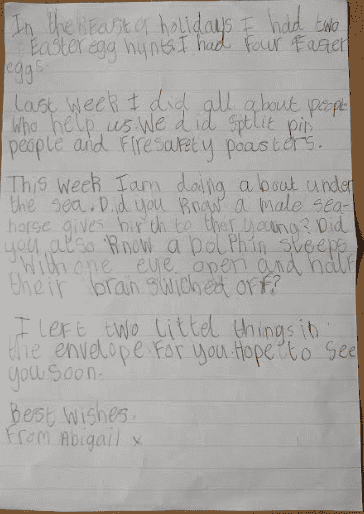 In the Easter holidays I had two
Easter egg hunts I had Four Easter
eggs.
Last week I did all about peopl
who help us. We did Split pin
people and Firesafety poasters.
This week I am doing about under
the sea. Did you know a male sea-
horse gives birth to ther young? Did
you also know a Dolphin sleeps
With one eye open and half
their brain swiched off?
I left two littel things in
the envelope For you. Hope to See
you Soon.
Best Wishes.
From Abigail x